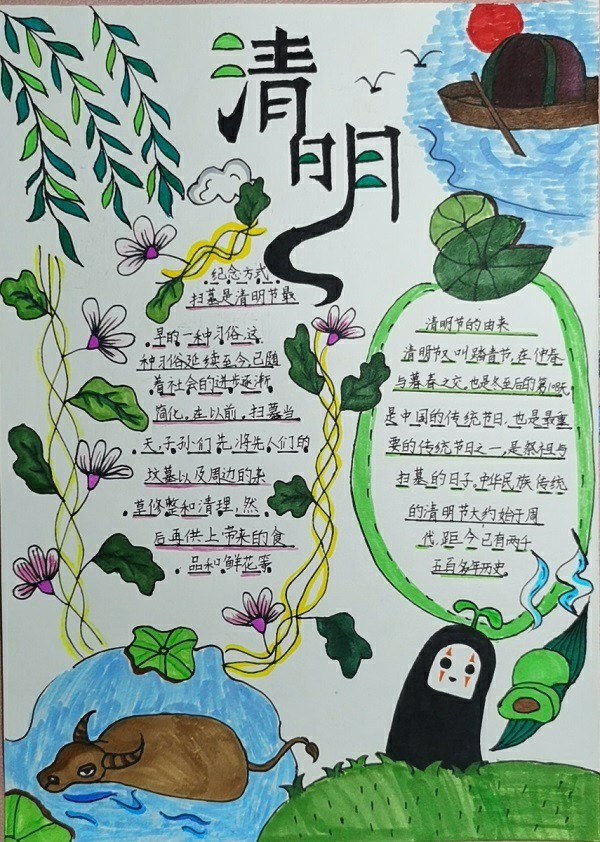 清明
纪念方式
扫墓是清明节最
早的一种习俗,这
种习俗延续至今,已随
着社会的进步逐渐
简化。在以前,扫墓当
天,子孙们先将先人们的
坟墓以及周边的杂
草修整和清理,然
后再供上带来的食
品和鲜花等
清明节的由来
清明节又叫踏青节,在仲春
与暮春之交,也是冬至后的第108天
是中国的传统节日,也是最重
要的传统节日之一,是祭祖与
扫墓的日子,中华民族传统
的清明节大约始于周
代,距今已有两千
五百多年历史。